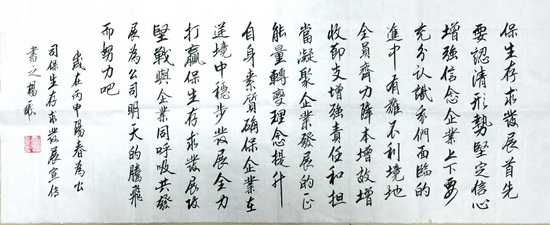 保生存求发展首先
要認清形勢堅定信心
增強信念企業上下要
充分认識我們面臨的
進中有难不利境地
全員齊力降本增效增
收節支增強責任和担
當凝聚企業發展的正
能量轉變理念提升
自身素質确保企業在
逆境中穩步發展全力
打贏保生存求發展攻
堅戰與企業同呼吸共發
展為公司明天的騰飛
而努力吧
歲在丙申陽春為公
司保生存求發展宣傳
書之楊